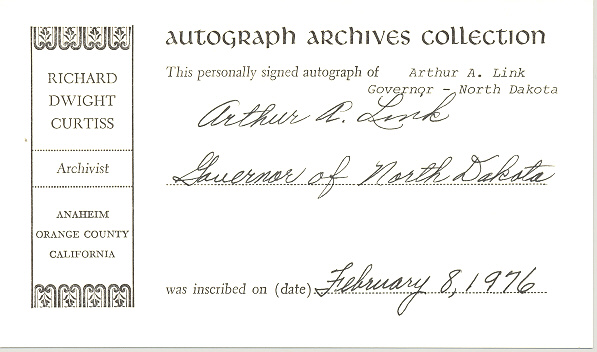 AUTOGRAPH ARCHIVES COLLECTION
RICHARD
DWIGHT
CURTISS
Archivist
ANAHEIM
ORANGE COUNTY
CALIFORNIA
This personally signed autograph of Arthur A. Link
Governor - North Dakota
Arthur A. Link
Governor of North Dakota
was inscribed on (date) February 8, 1976